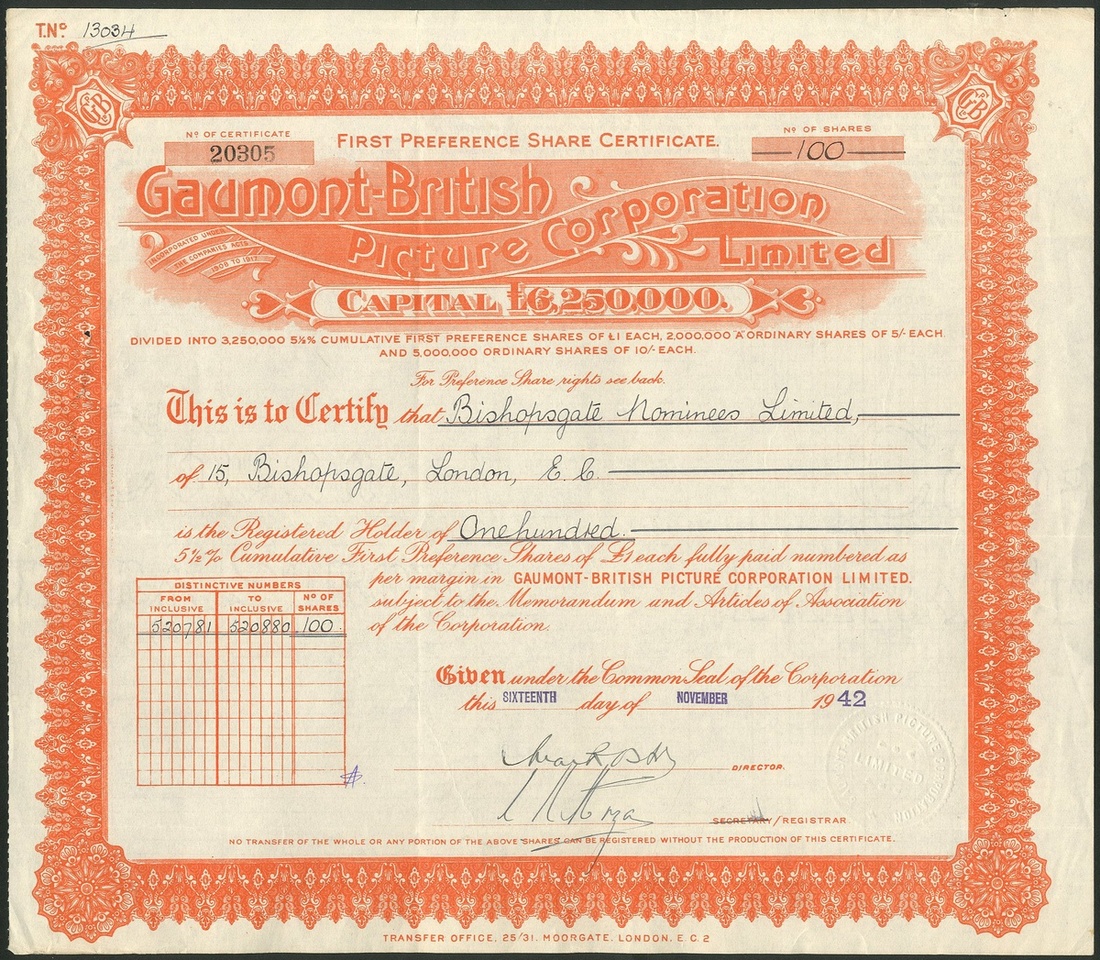 T.Nº 13034
Nº OF CERTIFICATE
20305
FIRST PREFERENCE SHARE CERTIFICATE.
Nº OF SHARES
100
Gaumont-British
Picture Corporation
Limited
INCORPORATED UNDER
THE COMPANIES ACTS
1908 TO 1917
CAPITAL £6,250,000.
DIVIDED INTO 3,250,000 5½% CUMULATIVE FIRST PREFERENCE SHARES OF £1 EACH, 2,000,000 "A" ORDINARY SHARES OF 5/- EACH
AND 5,000,000 ORDINARY SHARES OF 10/- EACH.
For Preference Share rights see back.
This is to Certify that Bishopsgate Nominees Limited,
of 15, Bishopsgate, London, E.C.
is the Registered Holder of One hundred.
5½% Cumulative First Preference Shares of £1 each fully paid numbered as
per margin in GAUMONT-BRITISH PICTURE CORPORATION LIMITED.
subject to the Memorandum and Articles of Association
of the Corporation.
DISTINCTIVE NUMBERS
FROM INCLUSIVE TO INCLUSIVE Nº OF SHARES
520781 520880 100
Given under the Common Seal of the Corporation
this SIXTEENTH day of NOVEMBER 1942
DIRECTOR.
SECRETARY/REGISTRAR
NO TRANSFER OF THE WHOLE OR ANY PORTION OF THE ABOVE SHARES CAN BE REGISTERED WITHOUT THE PRODUCTION OF THIS CERTIFICATE.
TRANSFER OFFICE, 25/31, MOORGATE, LONDON, E.C.2